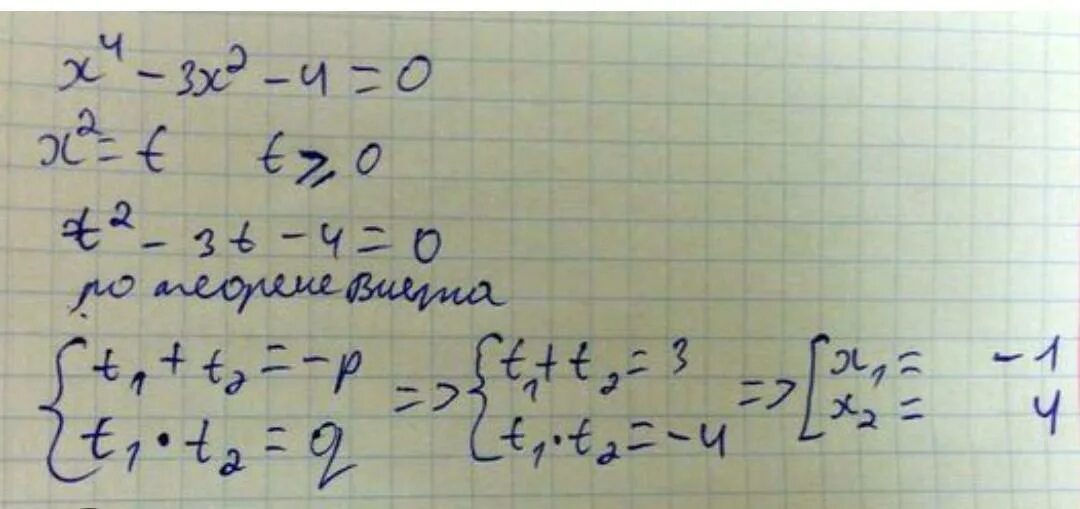 x⁴ - 3x² - 4 = 0
x² = t   t ⩾ 0
t² - 3t - 4 = 0
по теореме Виета
{ t₁ + t₂ = -p => { t₁ + t₂ = 3 => [ x₁ = -1
t₁ · t₂ = q   t₁ · t₂ = -4   x₂ = 4